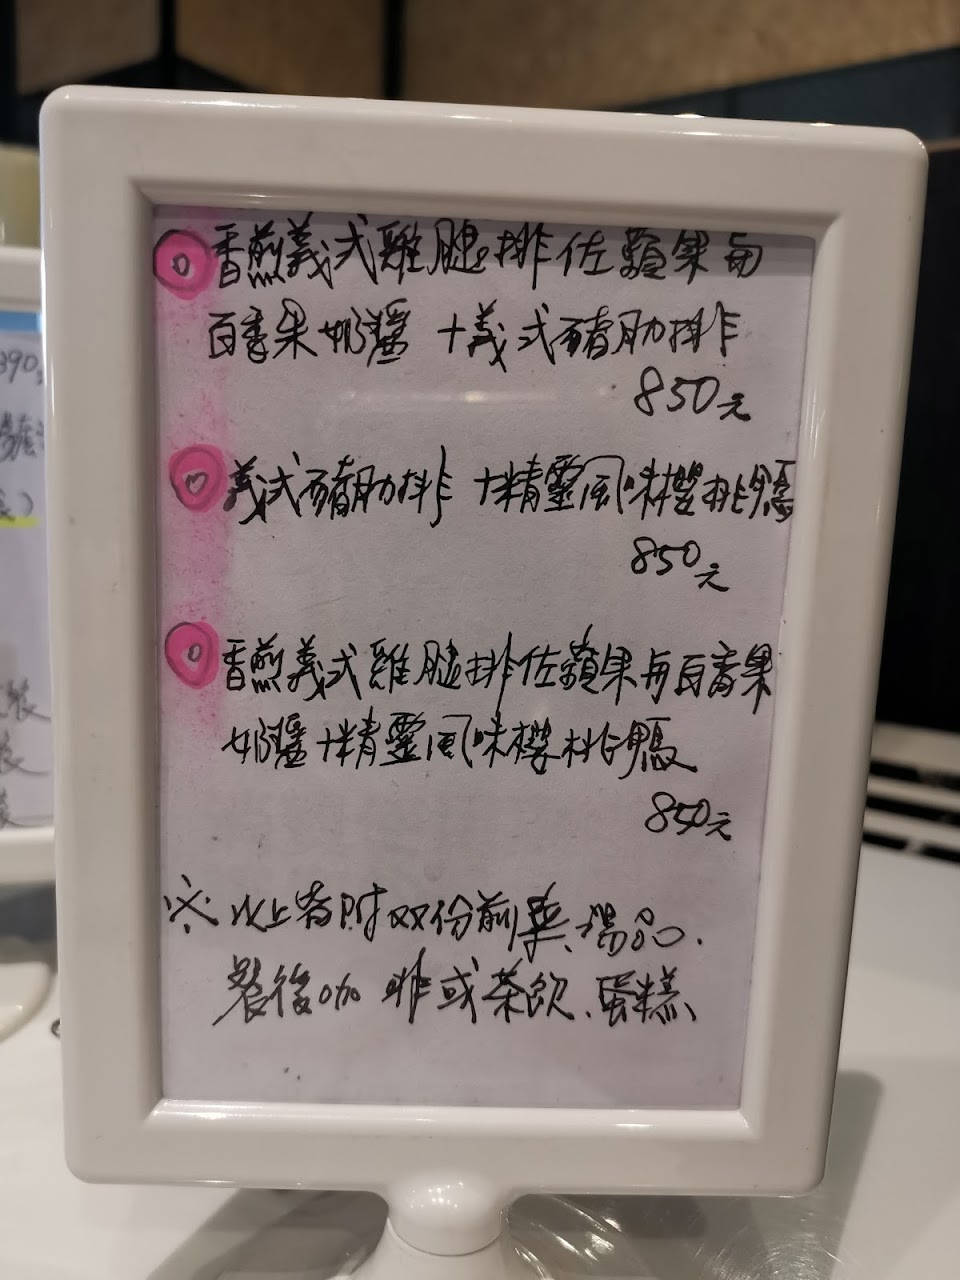 香煎義式雞腿排佐蘋果与
百香果奶醬 +義式豬肋排
850元
義式豬肋排 +精靈風味櫻桃鴨
850元
香煎義式雞腿排佐蘋果与百香果
奶醬+精靈風味櫻桃鴨
850元
※以上皆附双份前菜、湯品、
餐後咖啡或茶飲、蛋糕
390元